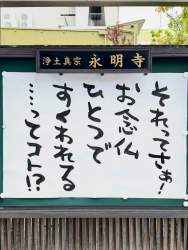 浄土真宗 永明寺
それってさぁ!
お念仏
ひとつで
すくわれる
……ってコト!?